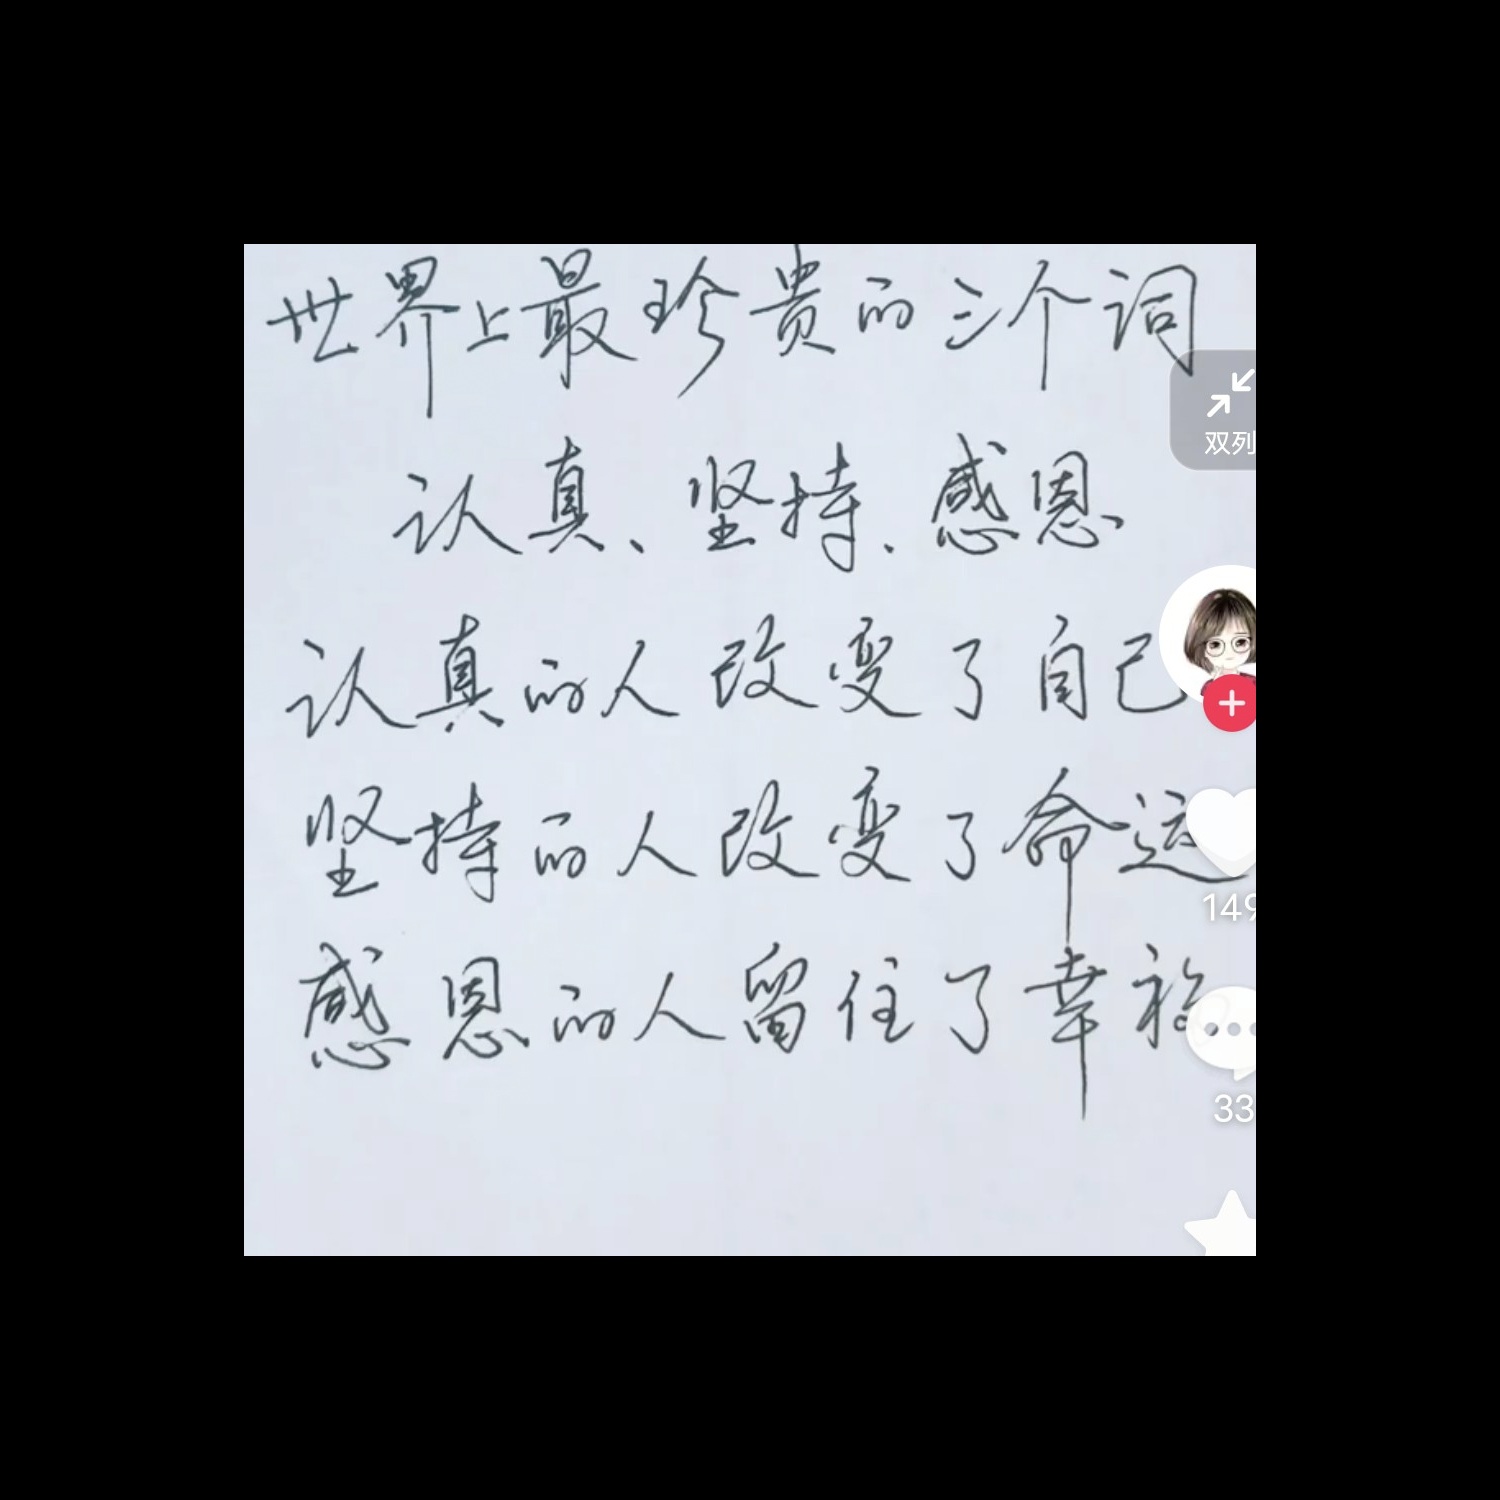 世界上最珍贵的三个词
双列
认真、坚持、感恩
认真的人改变了自己
坚持的人改变了命运
149
感恩的人留住了幸福
33